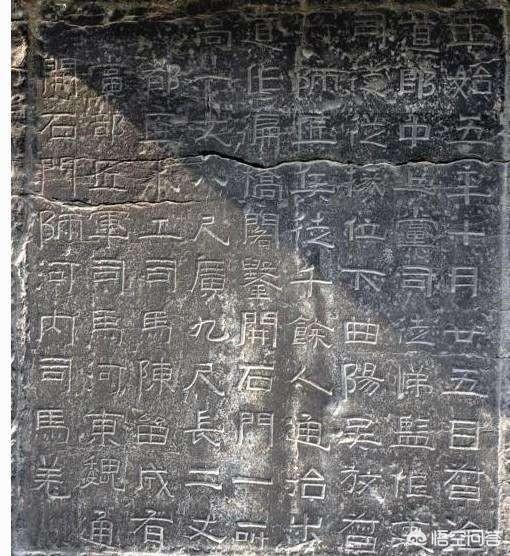 正始五年十月廿五日督治
道郎中上黨司徒悌監作吏
司徒從掾位下曲陽吳放督
將師匠兵徒千餘人通治步
道作偏橋閣鑿開石門一所
高一丈八尺廣九尺長二丈
都匠木工司馬陳留成有
當部匠軍司馬河東魏通
開石門師河內司馬羌
悟空问答